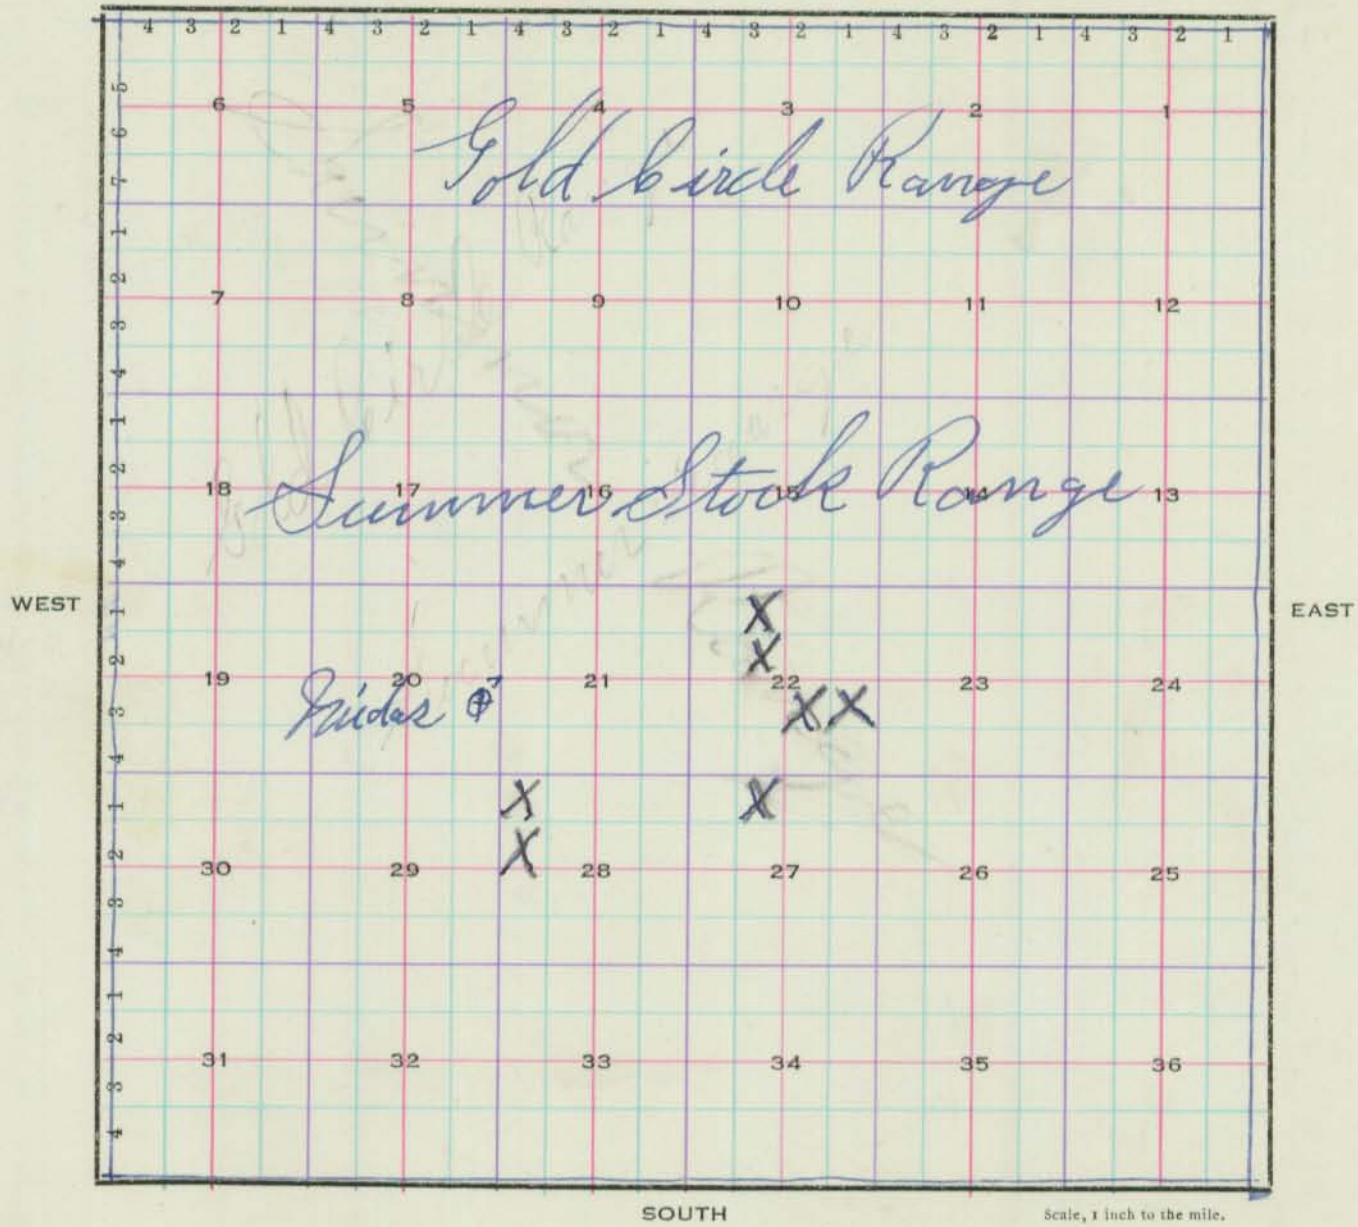 4 3 2 1 4 3 2 1 4 3 2 1 4 3 2 1 4 3 2 1 4 3 2 1
5
6 5 4 3 2 1
6
Gold Circle Range
7
1
2
7 8 9 10 11 12
3
4
1
2
18 17 16 15 14 13
Summer Stock Range
3
4
WEST EAST
1 X
2 X
19 20 21 22 23 24
3 Midas X X
4
1 X X
2 X
30 29 28 27 26 25
3
4
1
2
31 32 33 34 35 36
3
4
SOUTH
Scale, 1 inch to the mile.